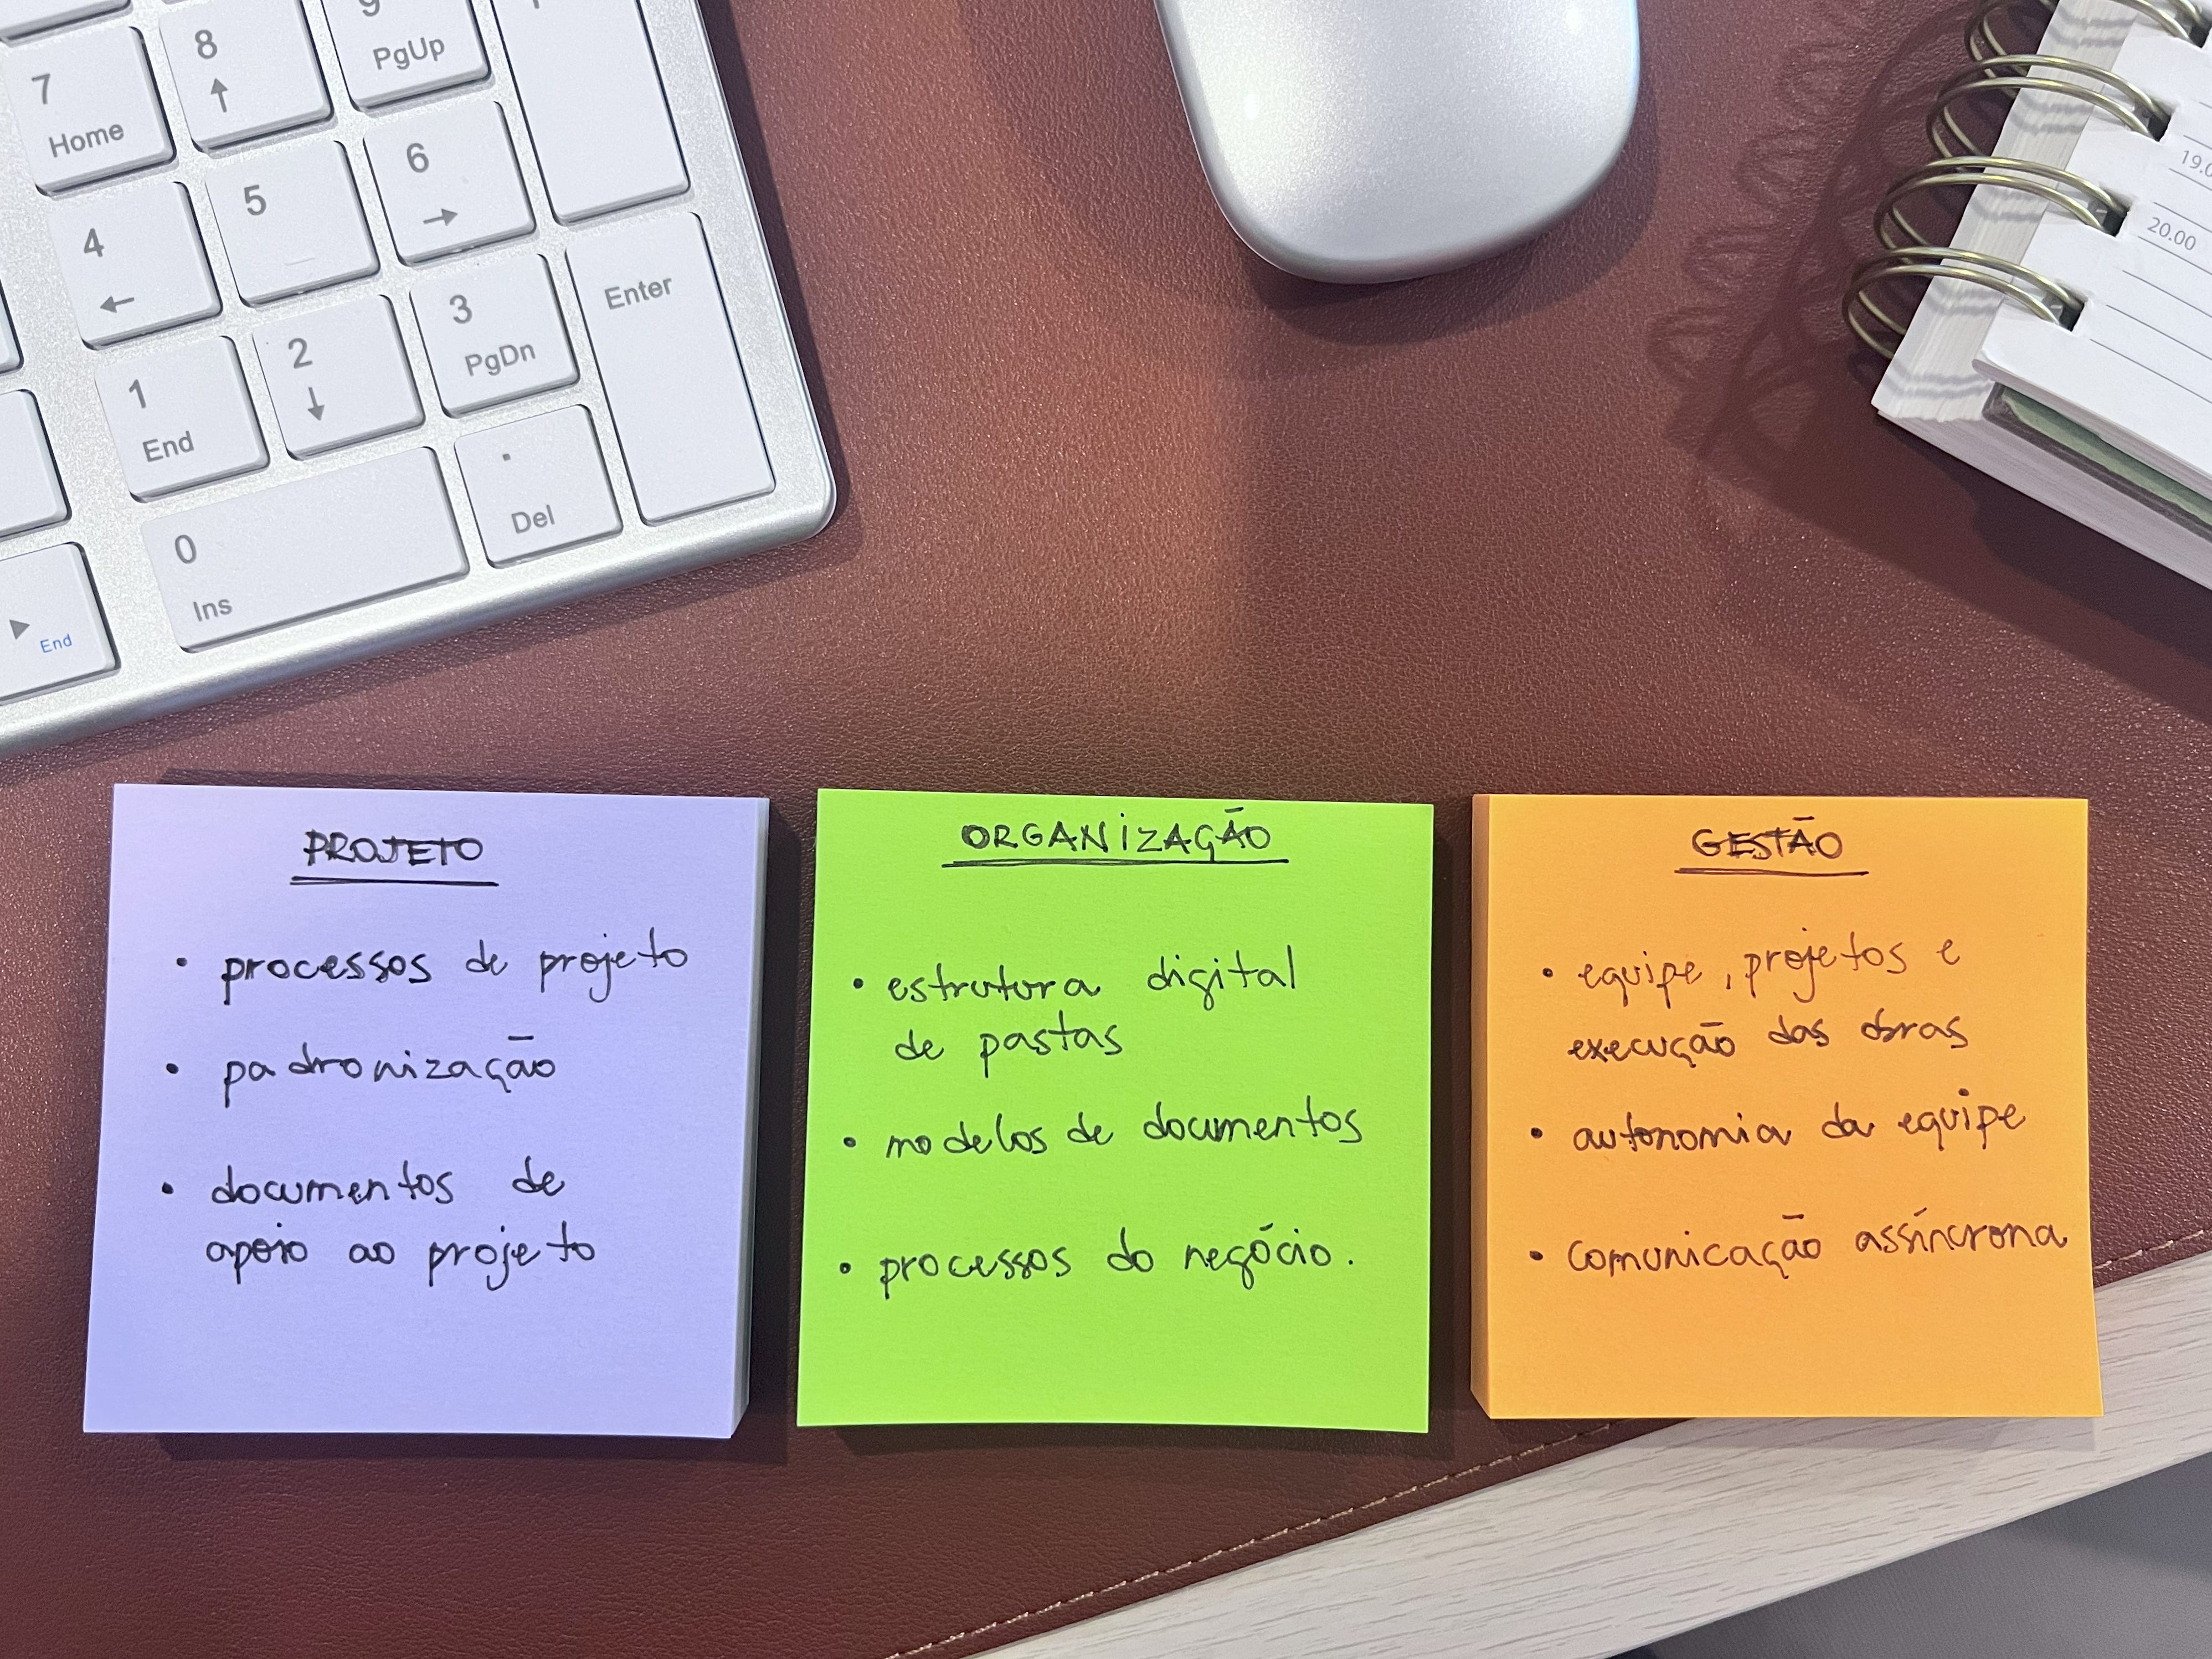 7
Home
8
↑
9
PgUp
4
←
5
6
→
1
End
2
↓
3
PgDn
Enter
0
Ins
.
Del
End
19.0
20.00
PROJETO
• processos de projeto
• padronização
• documentos de
apoio ao projeto
ORGANIZAÇÃO
• estrutura digital
de pastas
• modelos de documentos
• processos do negócio.
GESTÃO
• equipe, projetos e
execução das obras
• autonomia da equipe
• comunicação assíncrona